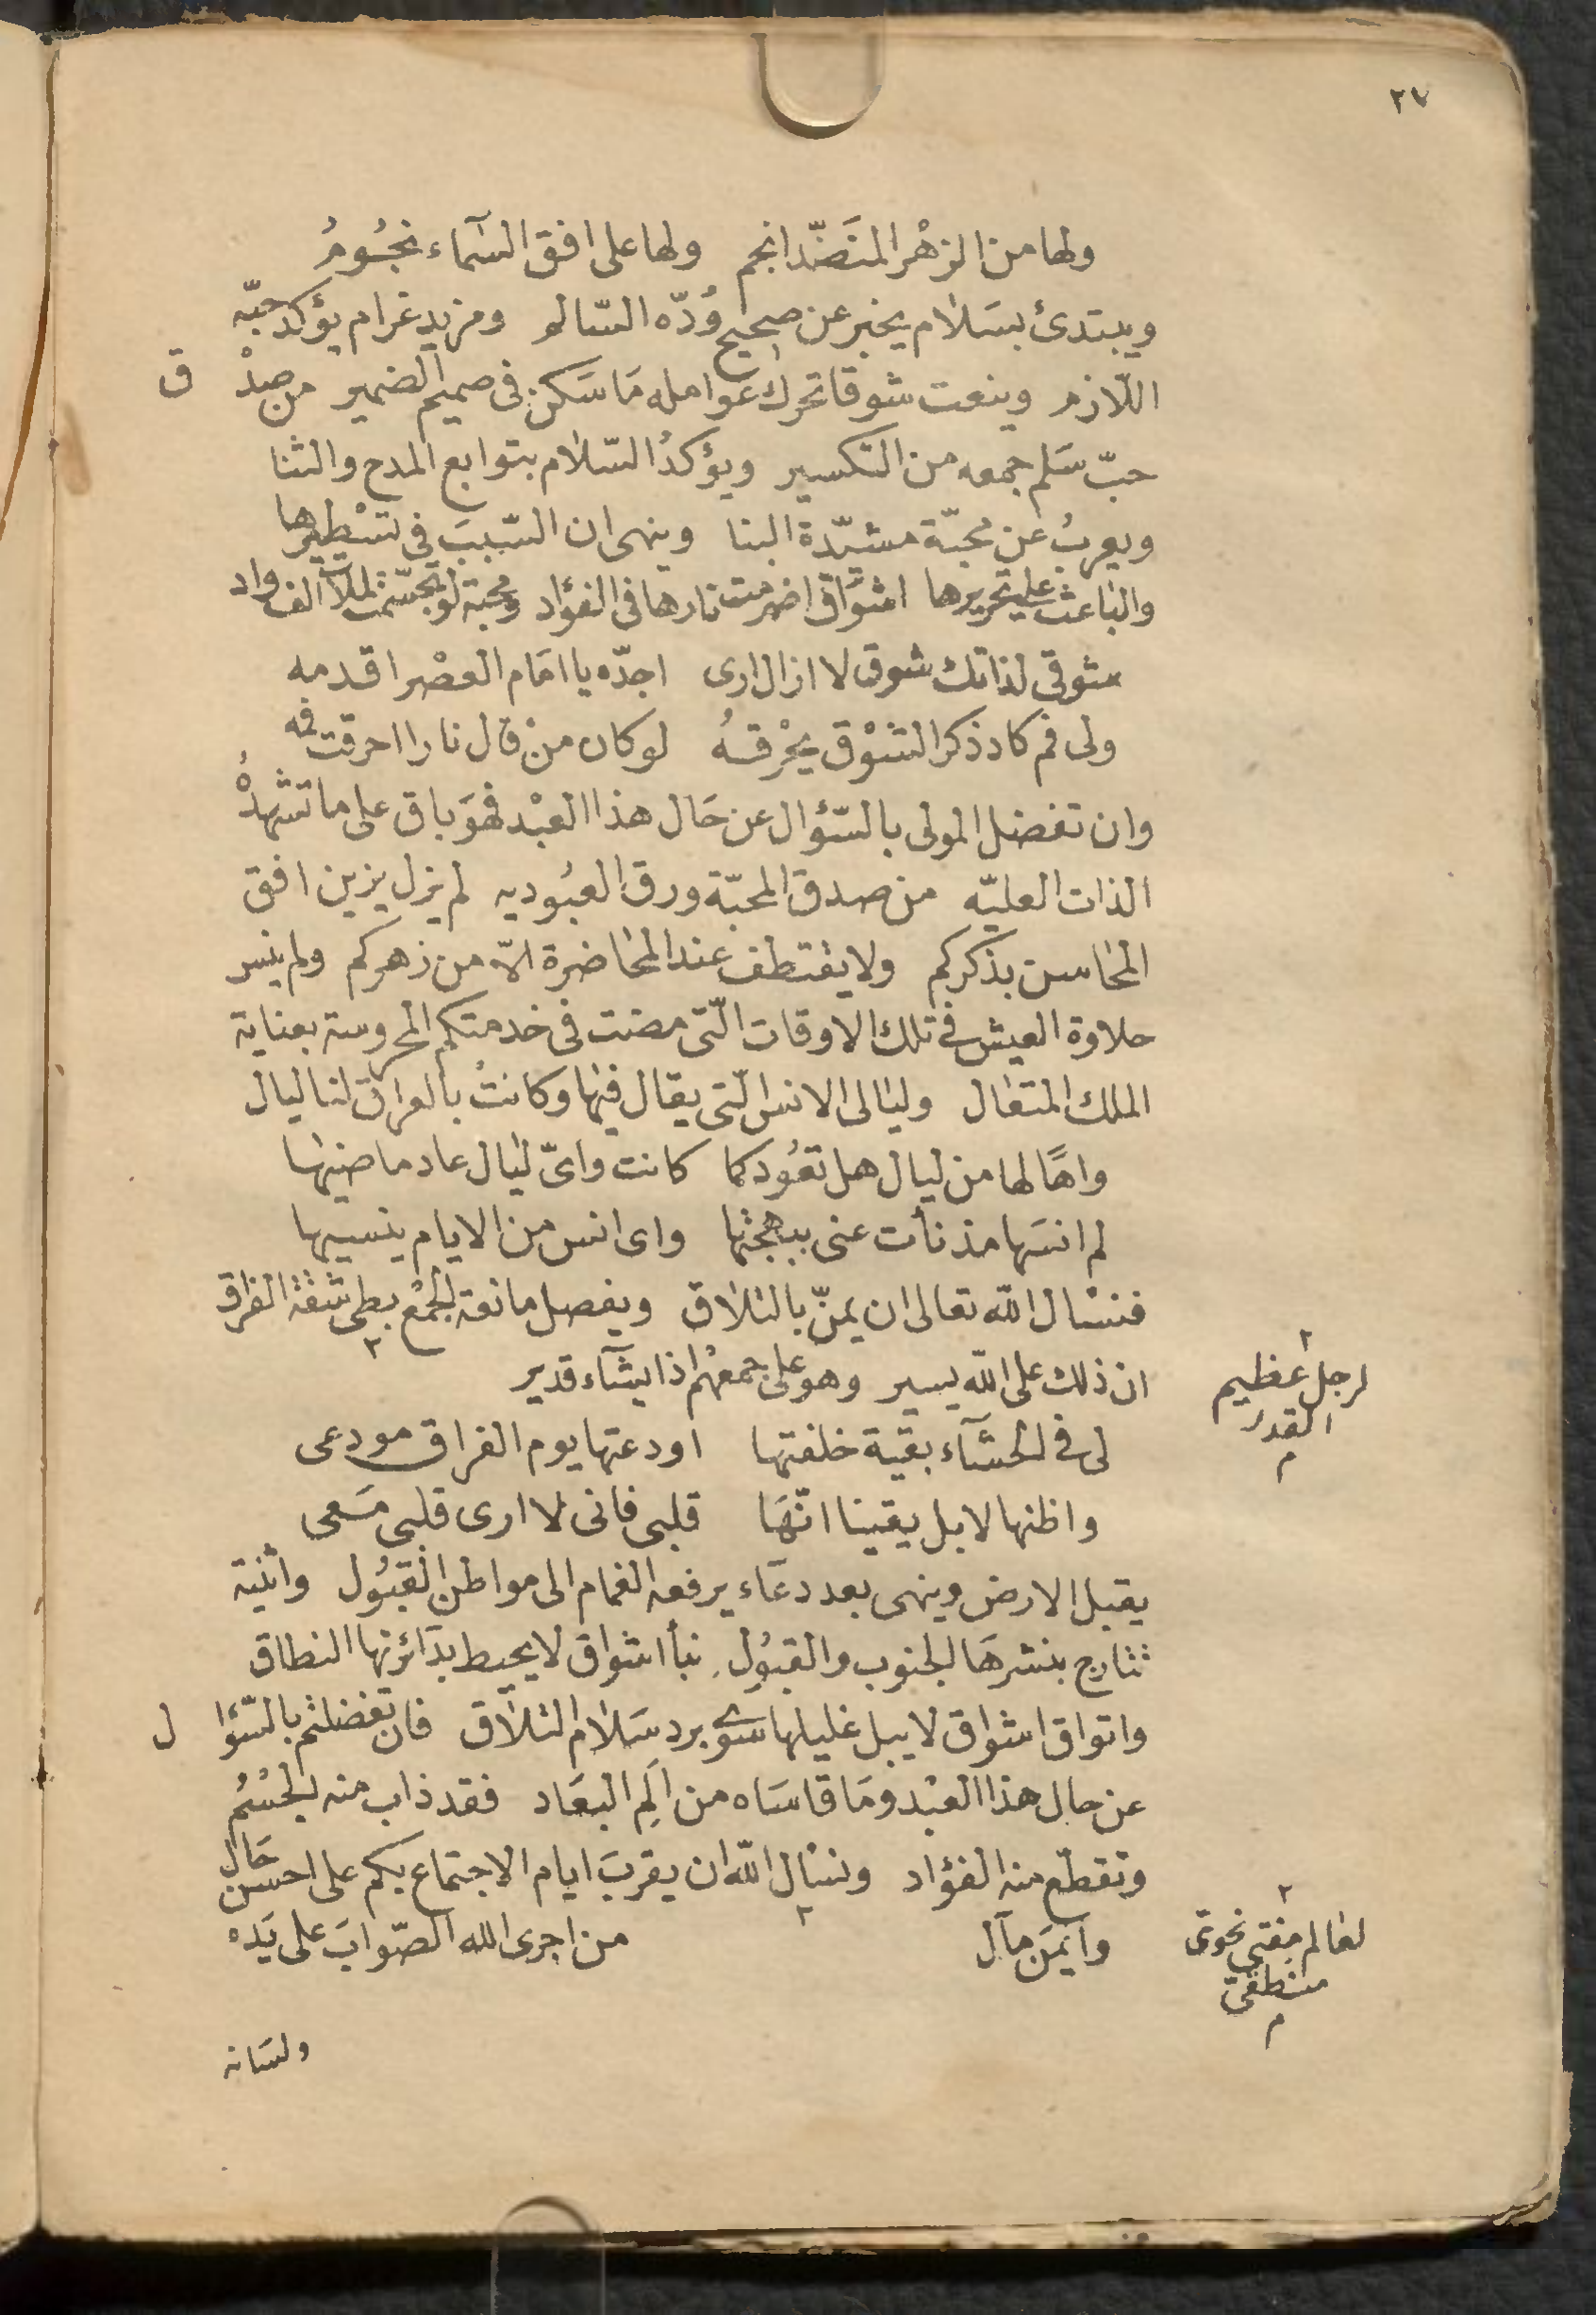 ٢٧
ولها من الزهْر المنَضّد انجم ولها على افق السّمآء نجُومُ
ويبتدئ بسَلام يخبر عن صحيح وُدّه السّالم ومزيد غرام يؤكد حبّه
اللّازم وينعت شوقا تحرك عوامله مَا سَكن فى صميم الضمير من صدْ ق
حبّ سَلم جمعه من التكسير ويؤكدُ السّلام بتوابع المدح والثنا
ويعربُ عن محبّة مشيّدة البنا وينهى ان السّببَ فى تسْطيرها
والباعث على تحريرها اشوَاق اضرمت نارها فى الفؤاد ومحبة لو تجسّمت لملات الفـواد
شوقى لذاتك شوق لا ازال ارى اجدّه يا امَام العصْر اقدمه
ولى فم كاد ذكر الشوْق يحْرقهُ لو كان منْ قال نارا احرقت فمه
وان تفضل المولى بالسّؤال عن حَال هذا العبْد فهوَ باق على ما تشهدُهُ
الذات العليّه من صدق المحبّة ورق العبُوديه لم يزل يزين افق
المحَاسن بذكركم ولا يقتطف عند المحَاضرة الّا من زهركم ولم ينس
حلاوة العيش فى تلك الاوقات الّتى مضت فى خدمتكم المحروسة بعناية
الملك المتعَال وليَالى الانس الّتى يقال فيها وكانتْ بالعراق لنا ليال
واهًا لها من ليال هل تعُود كما كانت واىّ ليَال عاد ماضيها
لم انسَها مذ نأت عنى ببهجتها واى انس من الايام ينسيها
فنسْال اللّه تعالى ان يمنّ بالتلاق ويفصل مانعة الجمْع بطى شقة الفراق
ان ذلك على اللّه يسير وهو على جمعهْم اذا يشآء قدير
لرجل عظيم
القدر
م
لى فى الحشآء بقية خلفتها اودعتها يوم الفراق مودعى
واظنها لا بل يقينا انّهَا قلبى فانى لا ارى قلبى مَعى
يقبل الارض وينهى بعد دعَاء يرفعه الغمام الى مواطن القبُول واثنية
تتارج بنشرهَا الجنوب والقبُول نبأ اشواق لا يحيط بدَائرتها النطاق
واتواق اشواق لا يبل غليلها سوى برد سَلام التلاق فان تفضلتم بالسّؤا ل
عن حال هذا العبْد ومَا قاسَاه من الَم البعَاد فقد ذاب منه الجسْمُ
وتقطّع منه الفؤاد ونسْال اللّه ان يقربَ ايام الاجتماع بكم على احسن حَال
وايمَن مآل من اجرى الله الصّوابَ على يَده
لعَالم مفتى نحوىّ
منطقىّ
م
ولسَانه